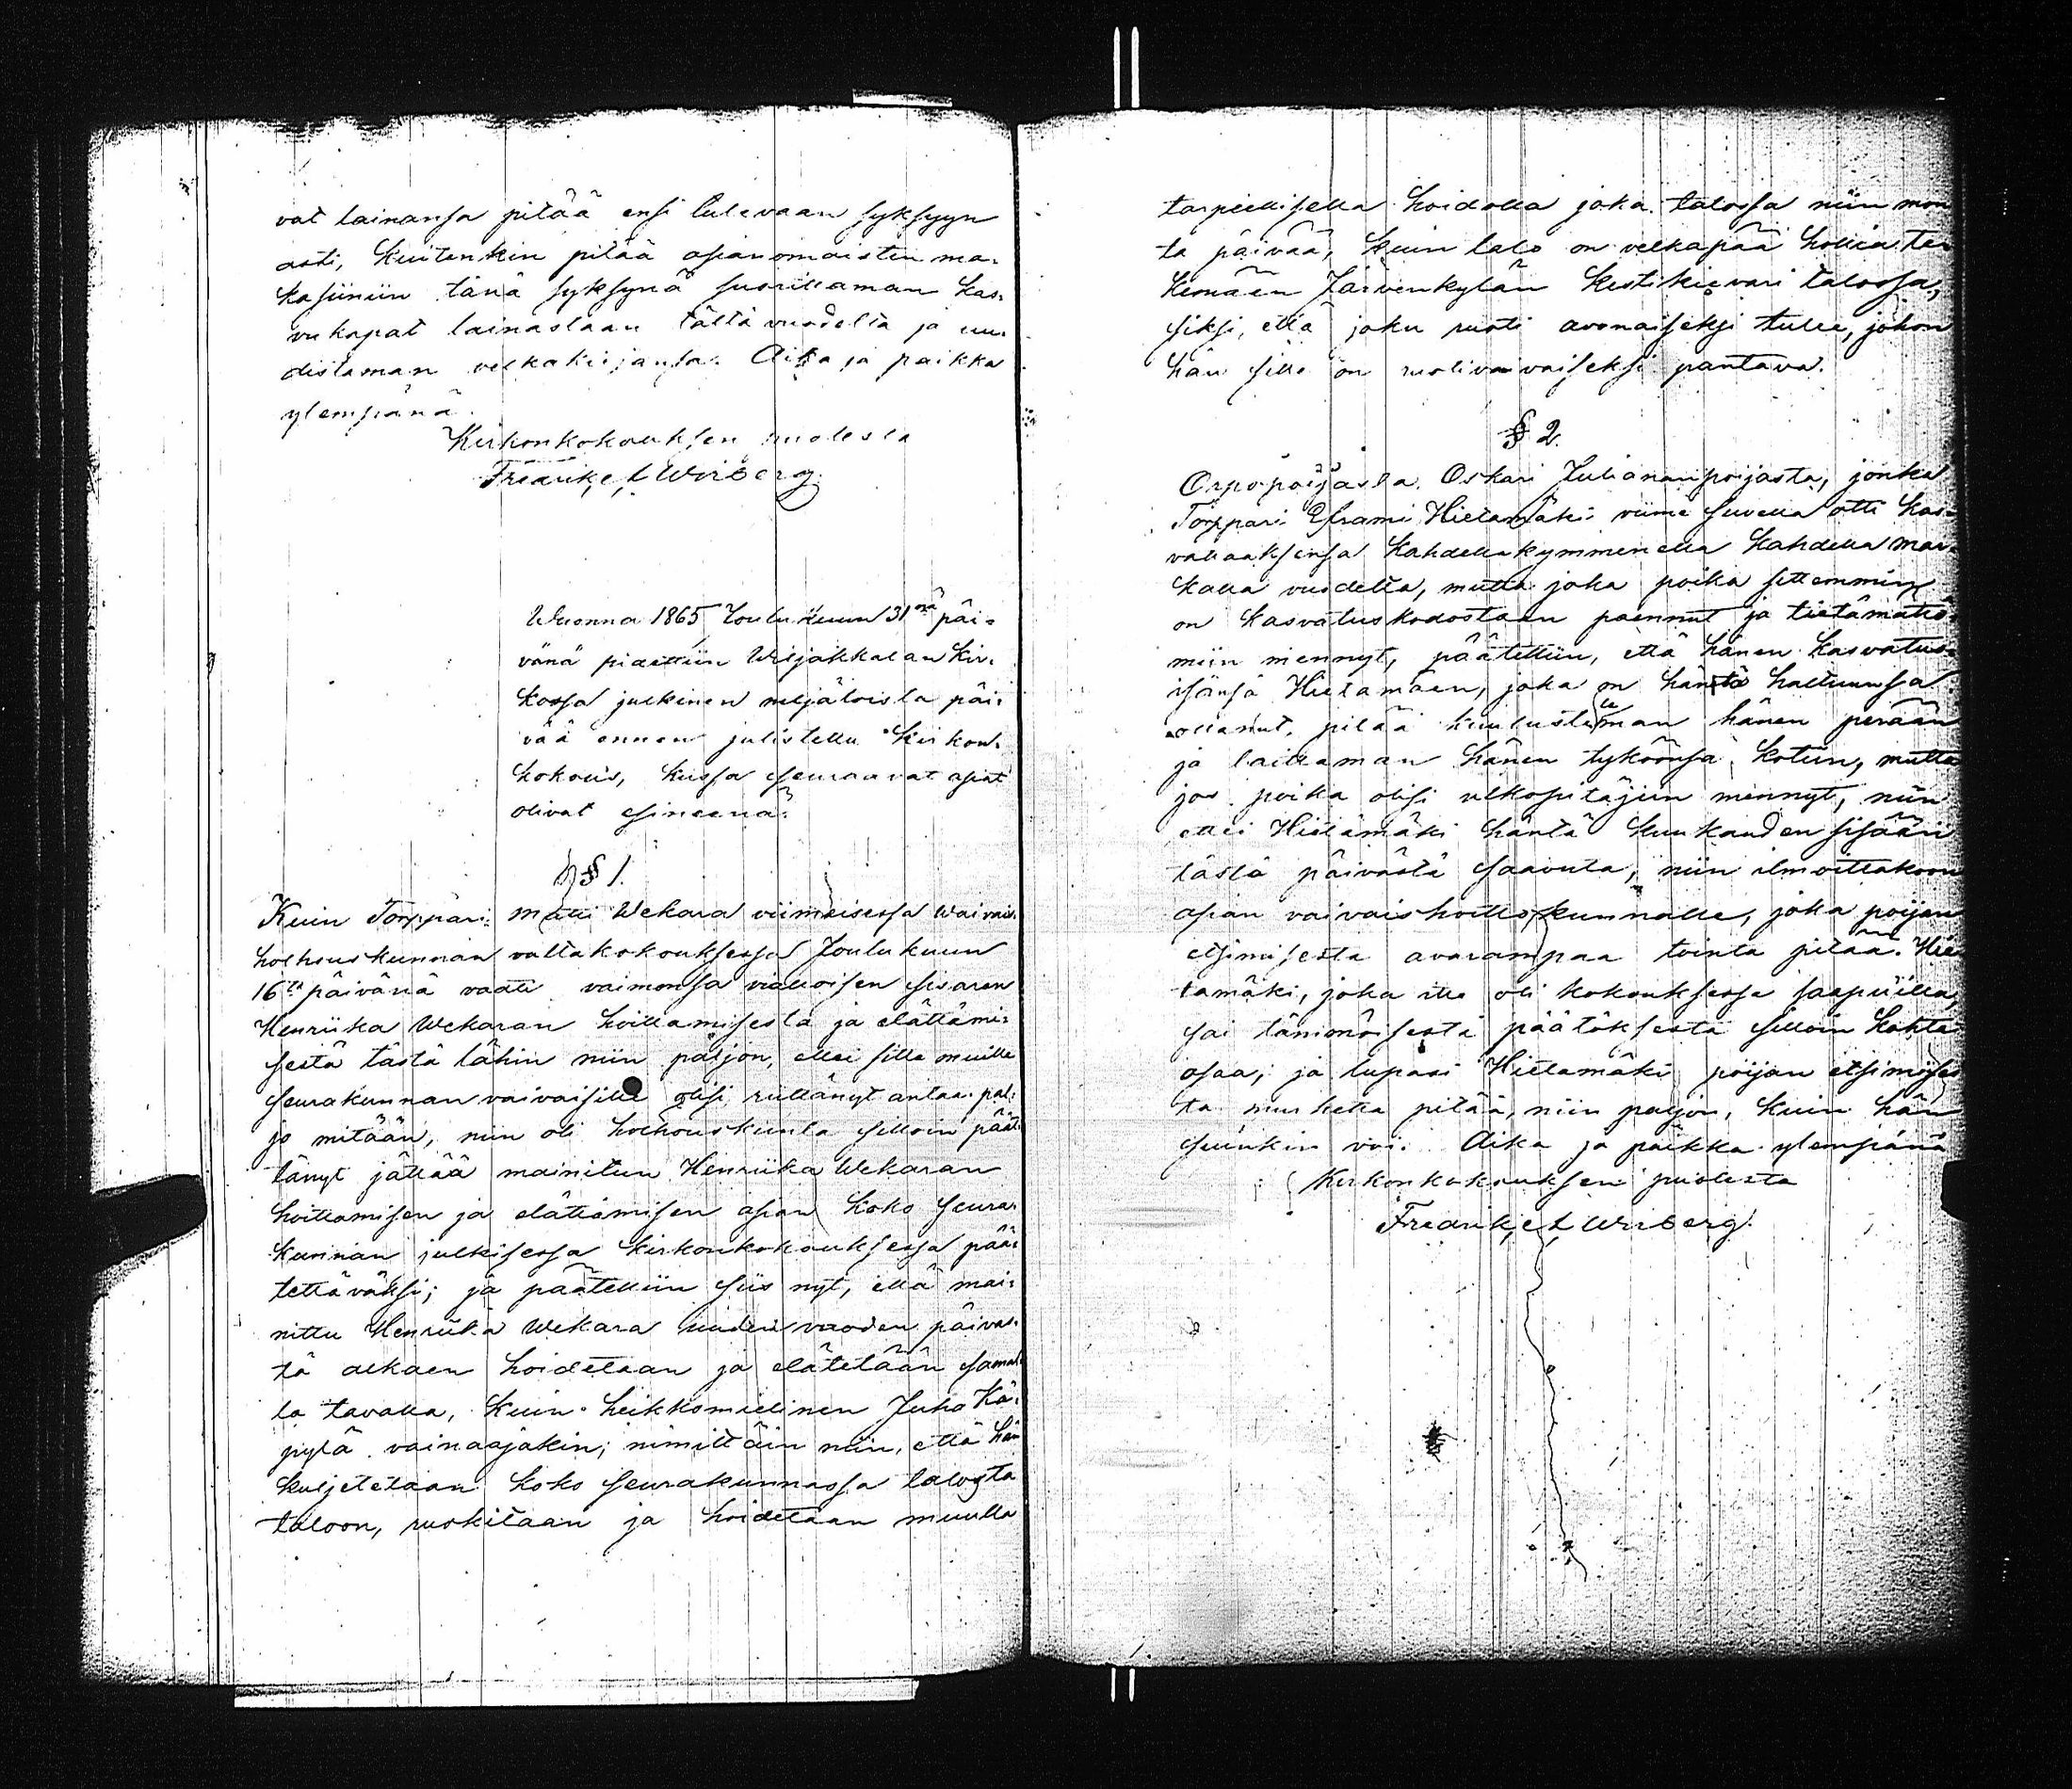 vat lainansa pitää ensi tulevaan syksyyn
asti, kuitenkin pitää asianomaisten ma-
kasiiniin tänä syksynä suorittaman kas-
vukapat lainastaan tältä vuodelta ja uu-
distaman velkakirjansa. Aika ja paikka
ylempänä.
Kirkonkokouksen puolesta
Fredrik Wiberg.
Wuonna 1865 Joulukuun 31nä päi-
vänä pidettiin Wiljakkalan kir-
kossa julkinen neljätoista päi-
vää ennen julistettu kirkon-
kokous, kussa seuraavat asiat
olivat esineenä:
§ 1.
Kuin Torppari Matti Wekara viimeisessä waivais-
holhouskunnan valtakokouksessa Joulukuun
16ta päivänä vaati vaimonsa viallisen sisaren
Henriika Wekaran hoittamisesta ja elättämi-
sestä tästä lähin niin paljon, ettei sille muille
seurakunnan vaivaisille olisi riittänyt antaa pal-
jo mitään, niin oli holhouskunta silloin päät-
tänyt jättää mainitun Henriika Wekaran
hoittamisen ja elättämisen asian koko seura-
kunnan julkisessa kirkonkokouksessa pää-
tettäväksi; ja päätettiin siis nyt, että mai-
nittu Henriika Wekara uuden vuoden päiväs-
tä alkaen hoidetaan ja elätetään samal-
la tavalla, kuin heikkomielinen Juho Kä-
pylä vainaajakin, nimittäin niin, että hän
kuljetetaan koko seurakunnassa talosta
taloon, ruokitaan ja hoidetaan muulla
tarpeellisella hoidolla joka talossa niin mon
ta päivää, kuin talo on velkapää hollia te-
kemään Järvenkylän kestikievari talossa,
siksi, että joku ruoti avonaiseksi tulee, johon
hän sille on ruotivaivaiseksi pantava.
§ 2.
Orpopoijasta Oskari Juliananpoijasta, jonka
Torppari Eframi Hietamäki viime suvella otti kas-
vattaaksensa kahdellakymmenellä kahdella mar-
kalla vuodelta, mutta joka poika sittemmin
on kasvatuskodostaan paennut ja tietämättö-
miin mennyt, päätettiin, että hänen kasvatus-
isänsä Hietamäen, joka on häntä haltuunsa
ottanut, pitää kuulusteleman hänen perään
ja laittaman hänen tyköönsä kotiin, mutta
jos poika olisi ulkopitäjiin mennyt, niin
ettei Hietamäki häntä kuukauden sisään
tästä päivästä saavuta, niin ilmoittakoon
asian vaivaishoitokunnalle, joka poijan
etsimisestä avarampaa tointa pitää. Hie-
tamäki, joka itse oli kokouksessa saapuilla,
sai tämmöisestä päätöksestä silloin kohta
osaa, ja lupasi Hietamäki poijan etsimises-
tä murhetta pitää, niin paljon, kuin hän
suinkin voi. Aika ja paikka ylempänä
Kirkonkokouksen puolesta
Fredrik Wiberg.